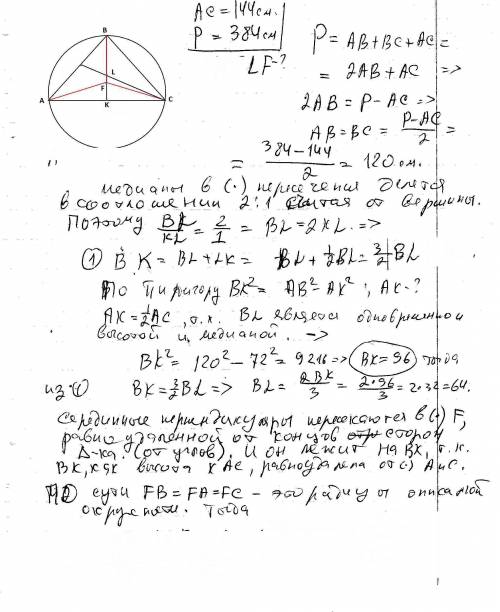 B
L
F
A
K
C
AC = 144 см.
P = 384 см
LF - ?
P = AB + BC + AC =
= 2AB + AC =>
2AB = P - AC =>
AB = BC = (P - AC)/2 =
= (384 - 144)/2 = 120 см.
медианы в (·) пересечения делятся
в соотношении 2:1 считая от вершины.
Поэтому BL/KL = 2/1 = BL = 2KL. =>
① BK = BL + LK = BL + 1/2 BL = 3/2 BL
По Пифагору BK² = AB² - AK²; AK - ?
AK = 1/2 AC, т.к. BL является одновременно и
высотой и медианой. ->
BK² = 120² - 72² = 9216 => BK = 96 тогда
из ① BK = 3/2 BL => BL = 2BK/3 = 2·96/3 = 2·32 = 64.
Серединные перпендикуляры пересекаются в (·) F,
равно удаленной от концов сторон
Δ-ка. (от углов). И он лежит на BK, т.к.
BK, как высота к AC, равноудалена от (·) A и C.
По сути FB = FA = FC - это радиус описаной
окружности. Тогда